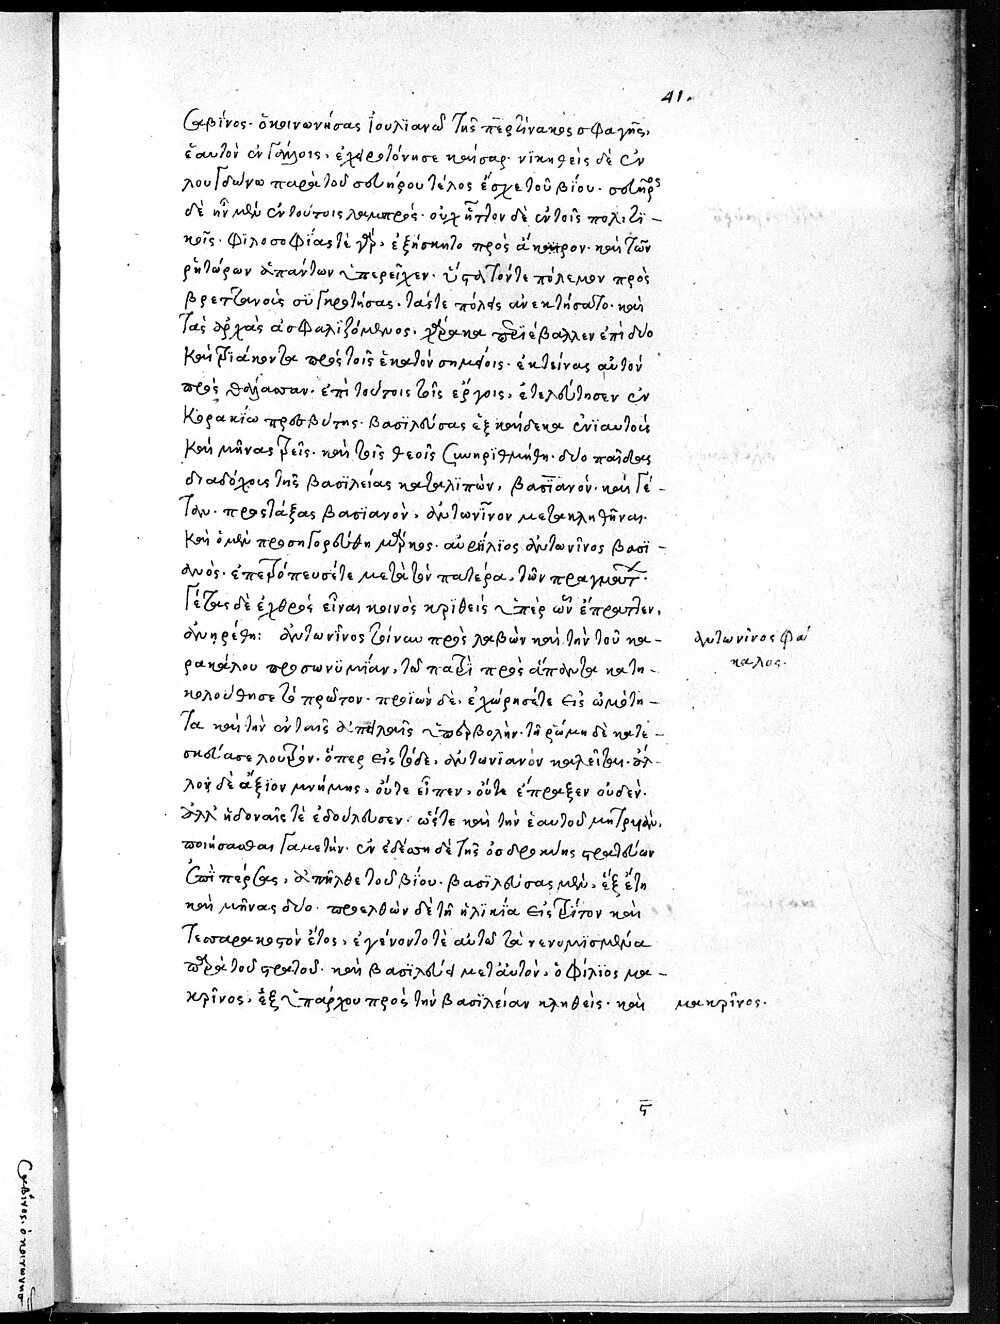 41.
σαβῖνος· ὁ κοινωνήσας ἰουλϊανῶ τῆς περτίνακος σφαγῆς,
ἑαυτὸν ἐν γάλλοις, ἐχειροτόνησε καίσαρ· νϊκηθεὶς δὲ ἐν
λουγδώνω παρὰ τοῦ σευήρου τέλος ἔσχε τοῦ βίου· σευῆρος
δὲ ἦν μὲν ἐν τούτοις λαμπρός· οὐχ ἧττον δὲ ἐν τοῖς πολιτϊ-
κοῖς· φϊλοσοφίας τὲ γὰρ, ἐξήσκητο πρὸς ἄκρον· καὶ τῶν
ῥητόρων ἁπάντων ὑπερεῖχεν· οὗτος τόν τε πόλεμον πρὸς
βρετϊανοὺς συγκροτήσας. τάς τε πόλεις ἀνεκτήσατο· καὶ
τὰς ἀρχὰς ἀσφαλϊζόμενος, χάρακα περϊέβαλλεν ἐπὶ δύο
καὶ τριάκοντα πρὸς τοῖς ἑκατὸν σημείοις· ἐκτείνας αὐτὸν
πρὸς θάλασσαν· ἐπὶ τούτοις τοῖς ἔργοις, ἐτελεύτησεν ἐν
κορακίω πρεσβύτης· βασϊλεύσας ἑξκαίδεκα ἐνϊαυτοὺς
καὶ μῆνας τρεῖς· καὶ τοῖς θεοῖς συνηριθμήθη· δύο παῖδας
διαδόχους τῆς βασϊλείας καταλϊπὼν, βασϊανόν· καὶ γέ-
ταν· προστάξας βασϊανὸν, ἀντωνῖνον μετακληθῆναι·
καὶ ὁ μὲν προσηγορεύθη μάρκος· αὐρήλϊος ἀντωνῖνος βασϊ-
ανός· ἐπετρόπευσέ τε μετὰ τὸν πατέρα, τῶν πραγμάτων·
γέτας δὲ ἐχθρὸς εἶναι κοινὸς κριθεὶς ὑπὲρ ὧν ἔπραττεν,
ἀνηρέθη: ἀντωνῖνος τοίνυν προσλαβὼν καὶ τὴν τοῦ κα-
ρακάλου προσωνυμίαν, τῶ πατρὶ πρὸς ἅπαντα κατη-
κολούθησε τὸ πρῶτον· προϊὼν δὲ, ἐχώρησέ τε εἰς ὠμότη-
τα καὶ τὴν ἐν ταῖς ἀπειλαῖς ὑπερβολήν· τῆ ῥώμη δὲ κατε-
σκεύασε λουτρόν· ὅπερ εἰς τόδε, ἀντωνϊανὸν καλεῖται· ἄλ-
λον δὲ ἄξϊον μνήμης, οὔτε εἶπεν, οὔτε ἔπραξεν οὐδέν·
ἀλλ' ἡδοναῖς τὲ ἐδούλευσεν· ὥστε καὶ τὴν ἑαυτοῦ μητρυιὰν,
ποιήσασθαι γαμετήν· ἐν ἐδέση δὲ τῆς ὀσδροηνῆς στρατεύων
ἐπὶ πέρσας, ἀπῆλθε τοῦ βίου· βασϊλεύσας μὲν, ἓξ ἔτη
καὶ μῆνας δύο· προελθὼν δὲ τῆ ἡλικία εἰς τρίτον καὶ
τεσσαρακοστὸν ἔτος, ἐγένοντο τὲ αὐτῶ τὰ νενομϊσμένα
παρὰ τοῦ στρατοῦ· καὶ βασϊλεύει μετ' αὐτὸν, ὁ φίλϊος μα-
κρῖνος, ἐξ ὑπάρχου πρὸς τὴν βασϊλείαν κληθείς· καὶ
ἀντωνῖνος
καλος·
μακρῖνος·
ς
σαβῖνος· ὁ κοινωνησ